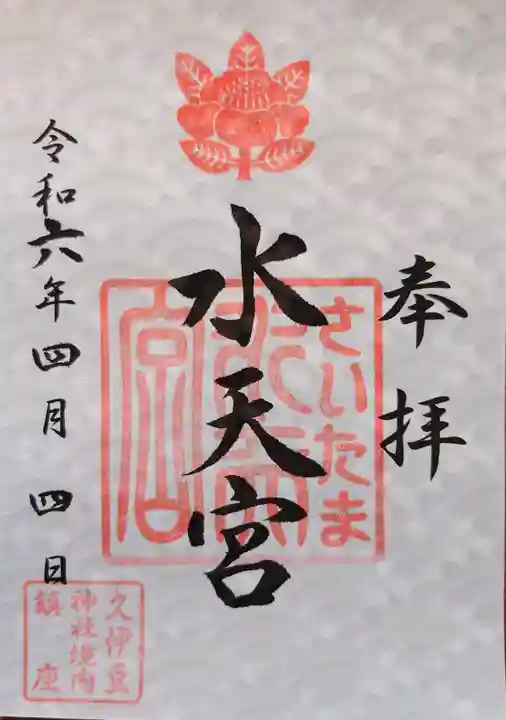 奉拝
さいたま
水天宮
水天宮
令和六年四月四日
久伊豆
神社境内
鎮座